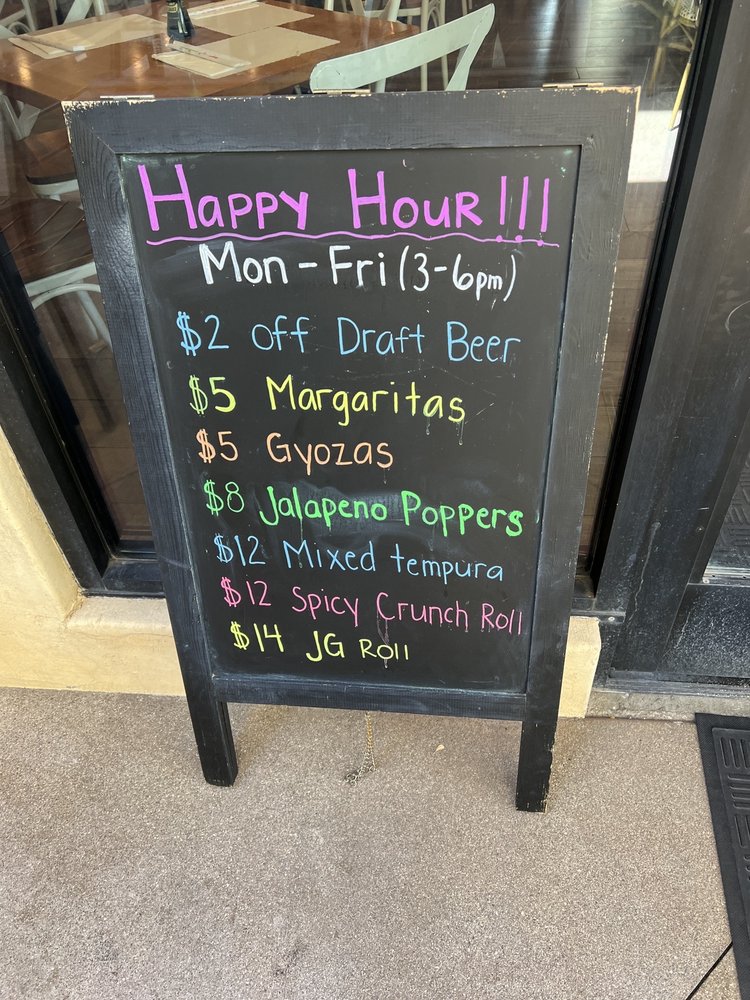 Happy Hour!!!
Mon-Fri (3-6pm)
$2 off Draft Beer
$5 Margaritas
$5 Gyozas
$8 Jalapeno Poppers
$12 Mixed tempura
$12 Spicy Crunch Roll
$14 JG Roll